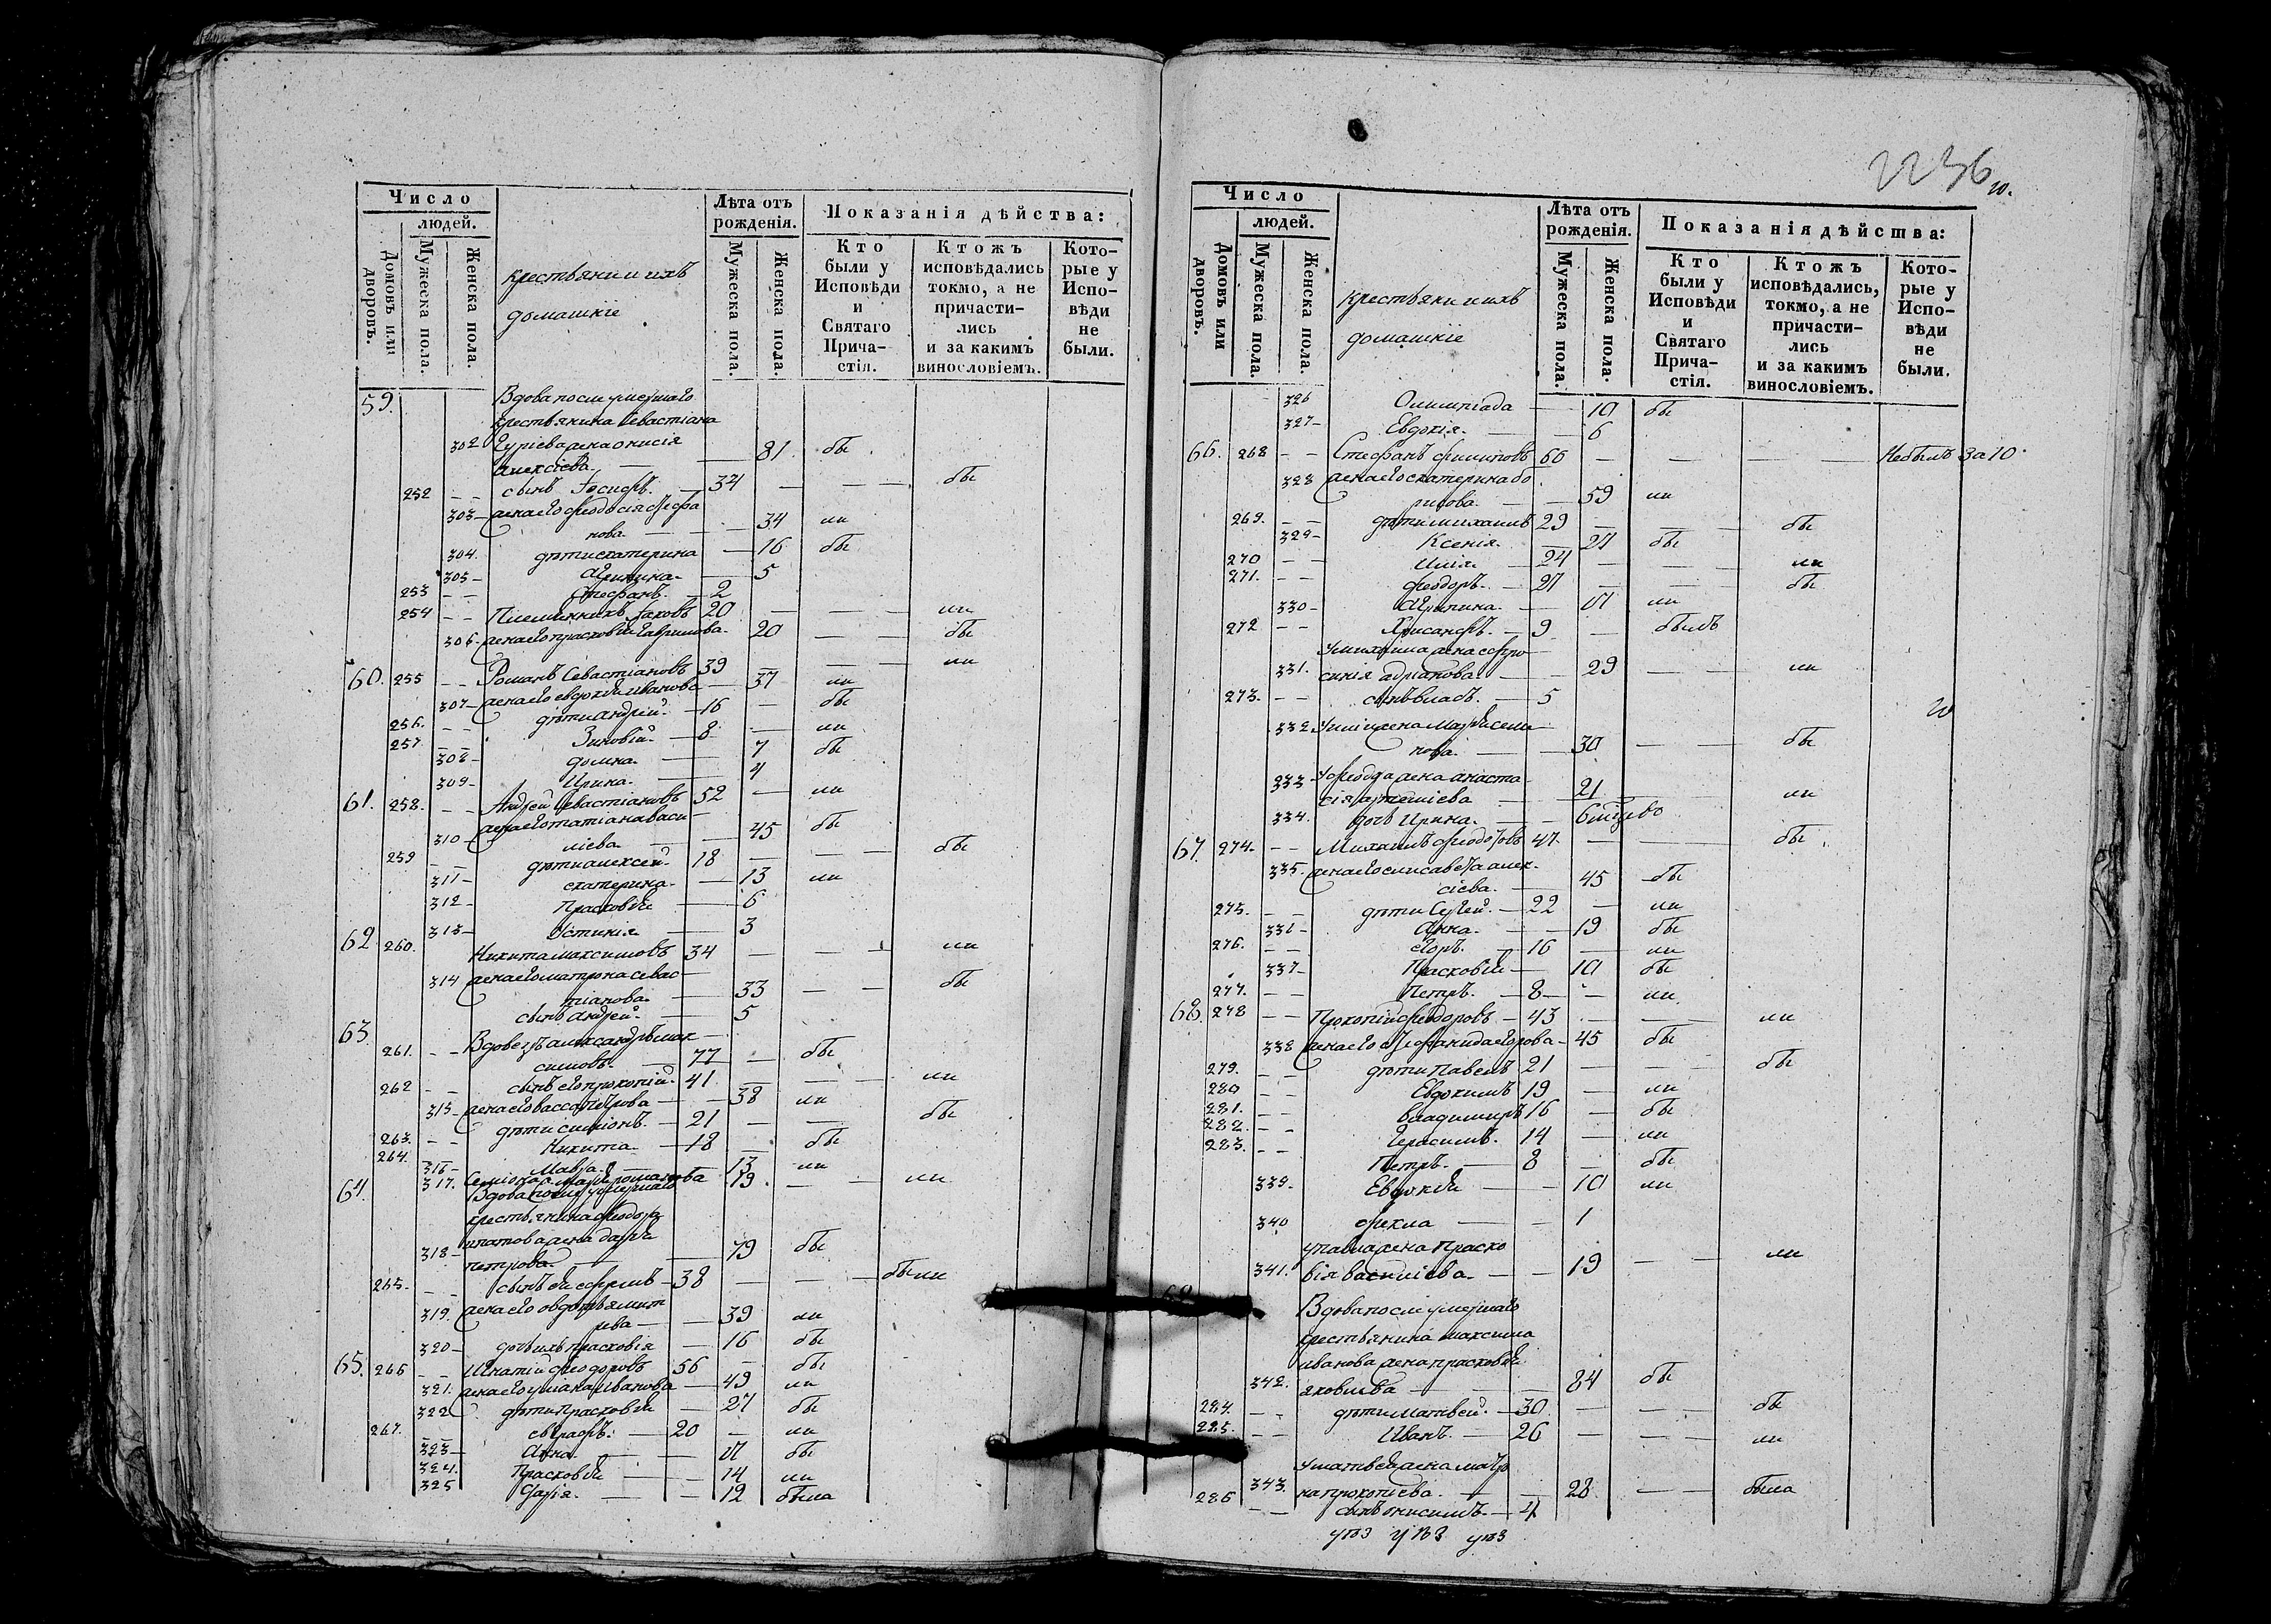 Число
людей.
Домовъ или дворовъ.
Мужеска пола.
Женска пола.
крестьяни и ихъ
домашніе
Лѣта отъ рожденія.
Мужеска пола.
Женска пола.
Показанія дѣйства:
Кто были у Исповѣди и Святаго Прича-стія.
Ктожъ исповѣдались токмо, а не причасти-лись и за какимъ винословіемъ.
Кото-рые у Испо-вѣди не были.
59. Вдова после умершаго
крестьянина Севастіана
302 Гуріева жена Онисія
Алексіева. — — 81 бы
252 — — сынъ Іосифъ. — 34 — — — бы
303 — жена его Феодосія
нова. — — 34 ли
304. дѣти екатерина — 16 бы
305 — Агрипина. — 5
253 — — Стефанъ. — 2
254 — — Племянникъ Іаковъ 20 — — — ли
306 — жена его прасковія Гаврилова — 20 — — бы
60. 255 — — Романъ Севастіановъ 39 — — — ли
307 — жена его евдокія иванова — 37 ли
256. — — дѣти андрей. — 16 — бы
257. — — Зиновій. — 8 — ли
308 — домна. — 7 бы
309 — Ирина. — 4
61. 258. — — Андрей Севастіановъ 52 — ли
310 — жена его татіана васи—
ліева — 45 бы
259 — — дѣти алексей. 18 — — — бы
311 — екатерина. — 13 ли
312 — Прасковія — 6
313 — Устинія — 3
62 260. Никита максимовъ 34 — — — ли
314 жена его матрона севас—
тіанова. — 33 — — бы
сынъ андрей. — 5
63. 261. — — Вдовецъ александръ мак—
симовъ. — 77 — бы
262 — — сынъ его прокопій. 41 — — — ли
315 — жена его васса Петрова — — 38 ли
263. — — дѣти симіонъ. — 21 — — бы
264. Никита. — 18 — бы
316 — Мавра. — 13 ли
317. Семіона ж. Марія романова 19. — — ли
64. Вдова после умершаго
крестьянина феодора
318 — ипатова жена дарія
петрова. — — 79 бы
265. — — сынъ ея ефремъ — 38 — — — были
319. жена его овдотья мит
рева — — 39 ли
320 — дочь ихъ прасковія — 16 бы
65. 266 — — Игнатій феодоровъ 56 — бы
321. жена его уліана иванова — 49 ли
322 дѣти Прасковія — 27 бы
267. — — евграфъ. — 20 — ли
323 — Анна — — 17 бы
324. Прасковія — — 14 ли
325 Дарія. — — 12 была
2236
10.
Число
людей.
Домовъ или дворовъ.
Мужеска пола.
Женска пола.
крестьяни и ихъ
домашніе
Лѣта отъ рожденія.
Мужеска пола.
Женска пола.
Показанія дѣйства:
Кто были у Исповѣди и Святаго Прича-стія.
Ктожъ исповѣдались, токмо, а не причасти-лись и за какимъ винословіемъ.
Кото-рые у Испо-вѣди не были.
326 Олимпіада — 10 бы
327 — Евдокія. — — 6
66. 268 — — Стефанъ филиповъ 60 — — — Небылъ За 10.
328 жена его екатерина бо
рисова. — — 59 ли
269. — — дѣти михаилъ 29 — — бы
329 — Ксенія. — 27 бы
270 — — Илія. — 24 — — ли
271. — — феодоръ. — 21 — — бы
330 — Агрипина. — 17 ли
272 — — Хрисанфъ. — 9 — былъ
У михаила жена ефро
331. синія адріанова. — — 29 — — ли
273. — — сынъ власъ. — 5
332 У иліи жена Марія семи
нова. — — 30 — — бы
333 У феодора жена анаста
сія артеміева — — 21 ли
334. дочь Ирина. — — 6 мѣсецо
67. 274. — — Михаилъ феодоровъ 47. — — бы
335. жена его елисавета алек.
сіева. — 45 бы
275. — — дѣти Сергей. — 22 — ли
336 — Анна. — — 19 бы
276. — — егоръ. — 16 — ли
337 — Прасковія — 10 бы
277. — — Петръ. — 8 — — ли
68. 278 — — Прокопій феодоровъ — 43 — — ли
338 жена его Стефанида егорова — 45 бы
279. — — дѣти Павелъ 21 — — бы
280 — — Евдокимъ 19 — ли
281. — — владимиръ 16 — бы
282. — — Герасимъ. 14 — ли
283. — — Петръ. — 8 — бы
339. Евдокія — — 10 ли
340 фекла — — 1
у павла жена Праско
341. вія василіева. — — 19 — — ли
69 Вдова после умершаго
крестьянина максима
иванова жена прасковія
342. яковлева — — 84 бы
284. — — дѣти матвей. — 30 — — бы
285. — — Иванъ. — 26 — — ли
у матвея жена матро
343. на прокопіева. — — 28 — — была
286 — — сынъ онисимъ. — 4